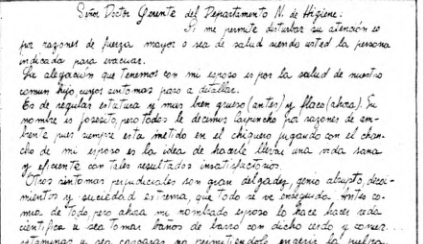 Señor Doctor Gerente del Departamento N. de Higiene:
Si me permite disturbar su atención es
por razones de fuerza mayor o sea de salud siendo usted la persona
indicada para evacuar.
La alegación que tenemos con mi esposo es por la salud de nuestro
comun hijo, cuyos sintomas paso a detallar.
Es de regular estatura y mus bien grueso (antes) y flaco (ahora). Su
nombre es Josesito, pero todos le decimos por razones de am-
biente pues siempre esta metido en el chiquero jugando con el chan-
cho de mi esposo es la idea de hacerle llevar una vida sana
y eficiente con tales resultados insatisfactorios.
Otros sintomas perjudiciales son gran delgadez, genio abrupto, decai-
mientos y suciedad estrema, que todo se ve enseguida. Antes co-
mia de todo pero ahora mi nombrado esposo lo hace hacer vida
cientifica o sea tomar baños de barro con dicho cerdo y comer
o sea cascaras no permitiendole ingerir la pulpa